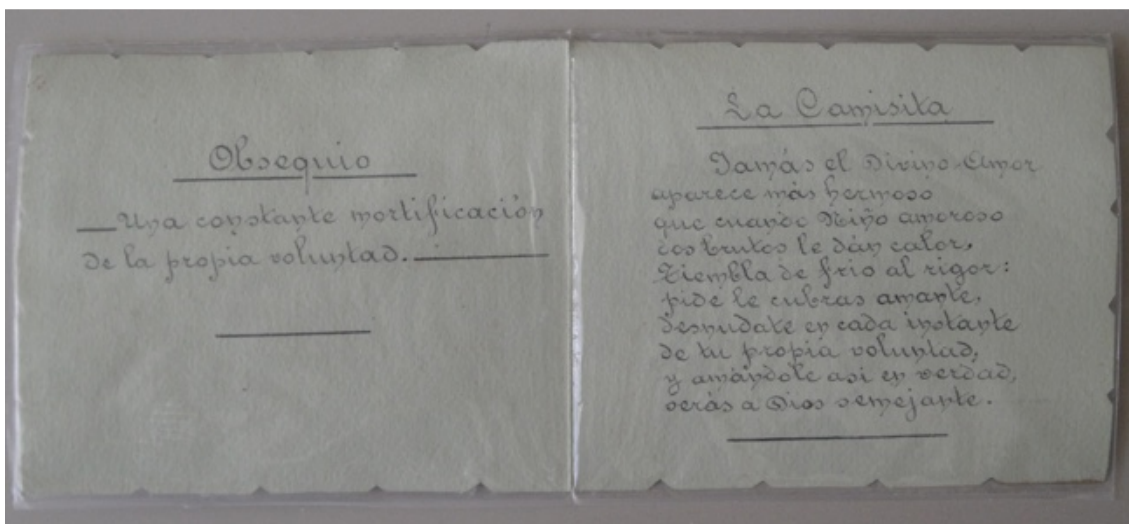 Obsequio
Una constante mortificación
de la propia voluntad.
La Camisita
Jamás el Divino-Amor
aparece más hermoso
que cuando Niño amoroso
dos brutos le dán calor,
Tiembla de frio al rigor:
pide le cubras amante,
desnudate en cada instante
de tu propia voluntad,
y amándole asi en verdad,
serás a Dios semejante.